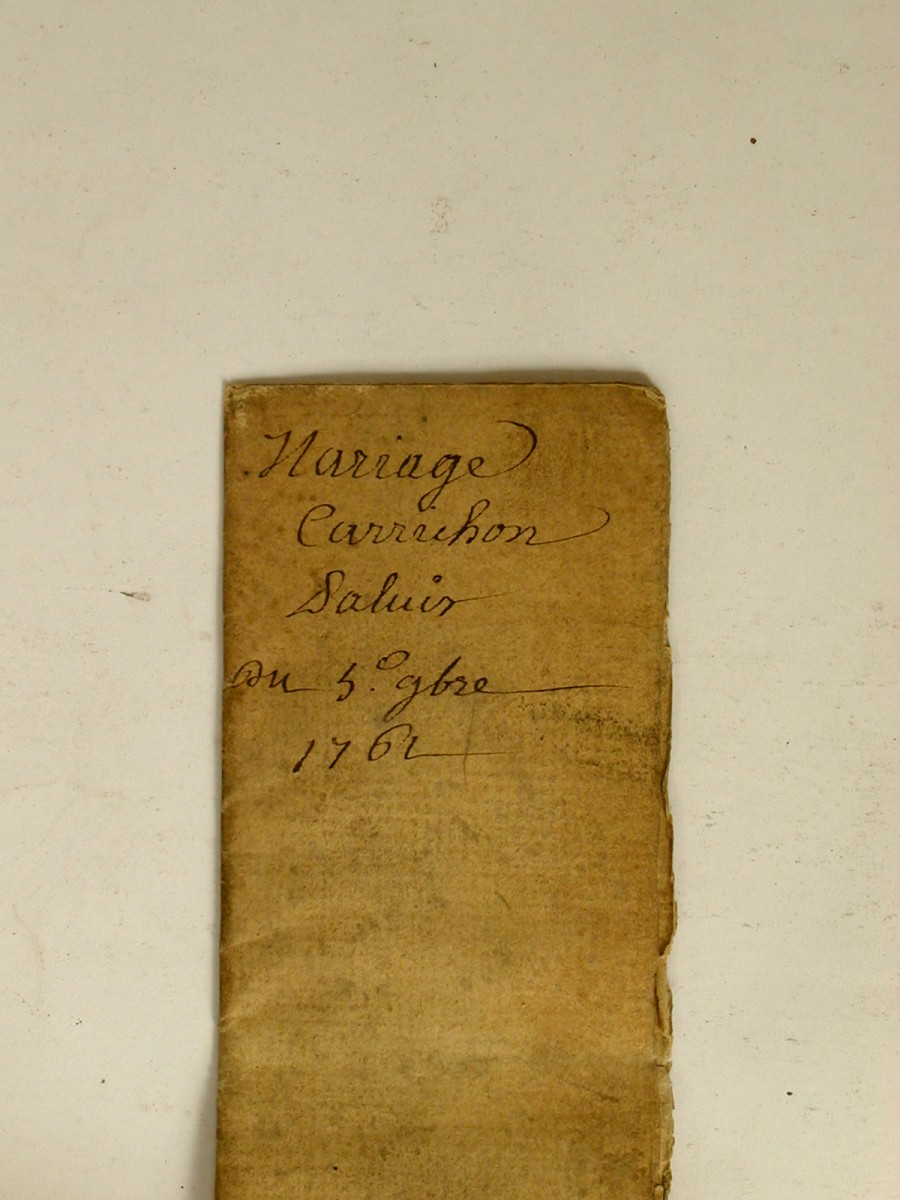 Mariage
Carrichon
Saluis
Du 5.º 9bre
1762